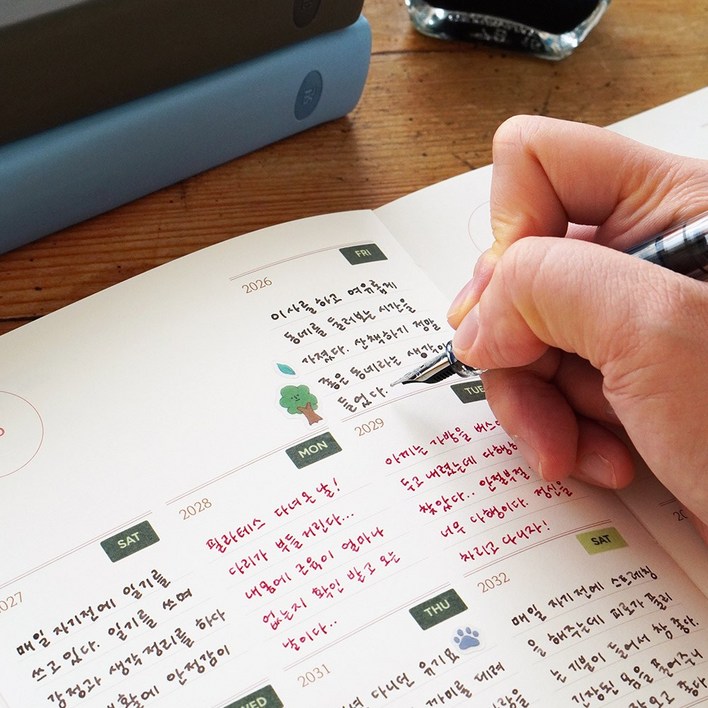 2026
FRI
이사를 하고 여유롭게
동네를 둘러보는 시간을
가졌다. 산책하기 정말
좋은 동네라는 생각이
들었다.
2027
SAT
매일 자기전에 일기를
쓰고 있다. 일기를 쓰며
감정과 생각정리를 하다
생활에 안정감이
2028
MON
필라테스 다녀온 날!
다리가 부들거린다...
내몸에 근육이 얼마나
없는지 확인 받고 오는
날이다..
2029
아끼는 가방을 버스에
두고 내렸는데 다행히
찾았다.. 안절부절
너무 다행이다. 정신을
차리고 다니자!
WED
2031
THU
다니던 유기묘
까미를 데려
2032
SAT
매일 자기전에 스트레칭
을 해주는데 피로가 풀리
는 기분이 들어서 참 좋다.
긴장된 몸을 풀어주니